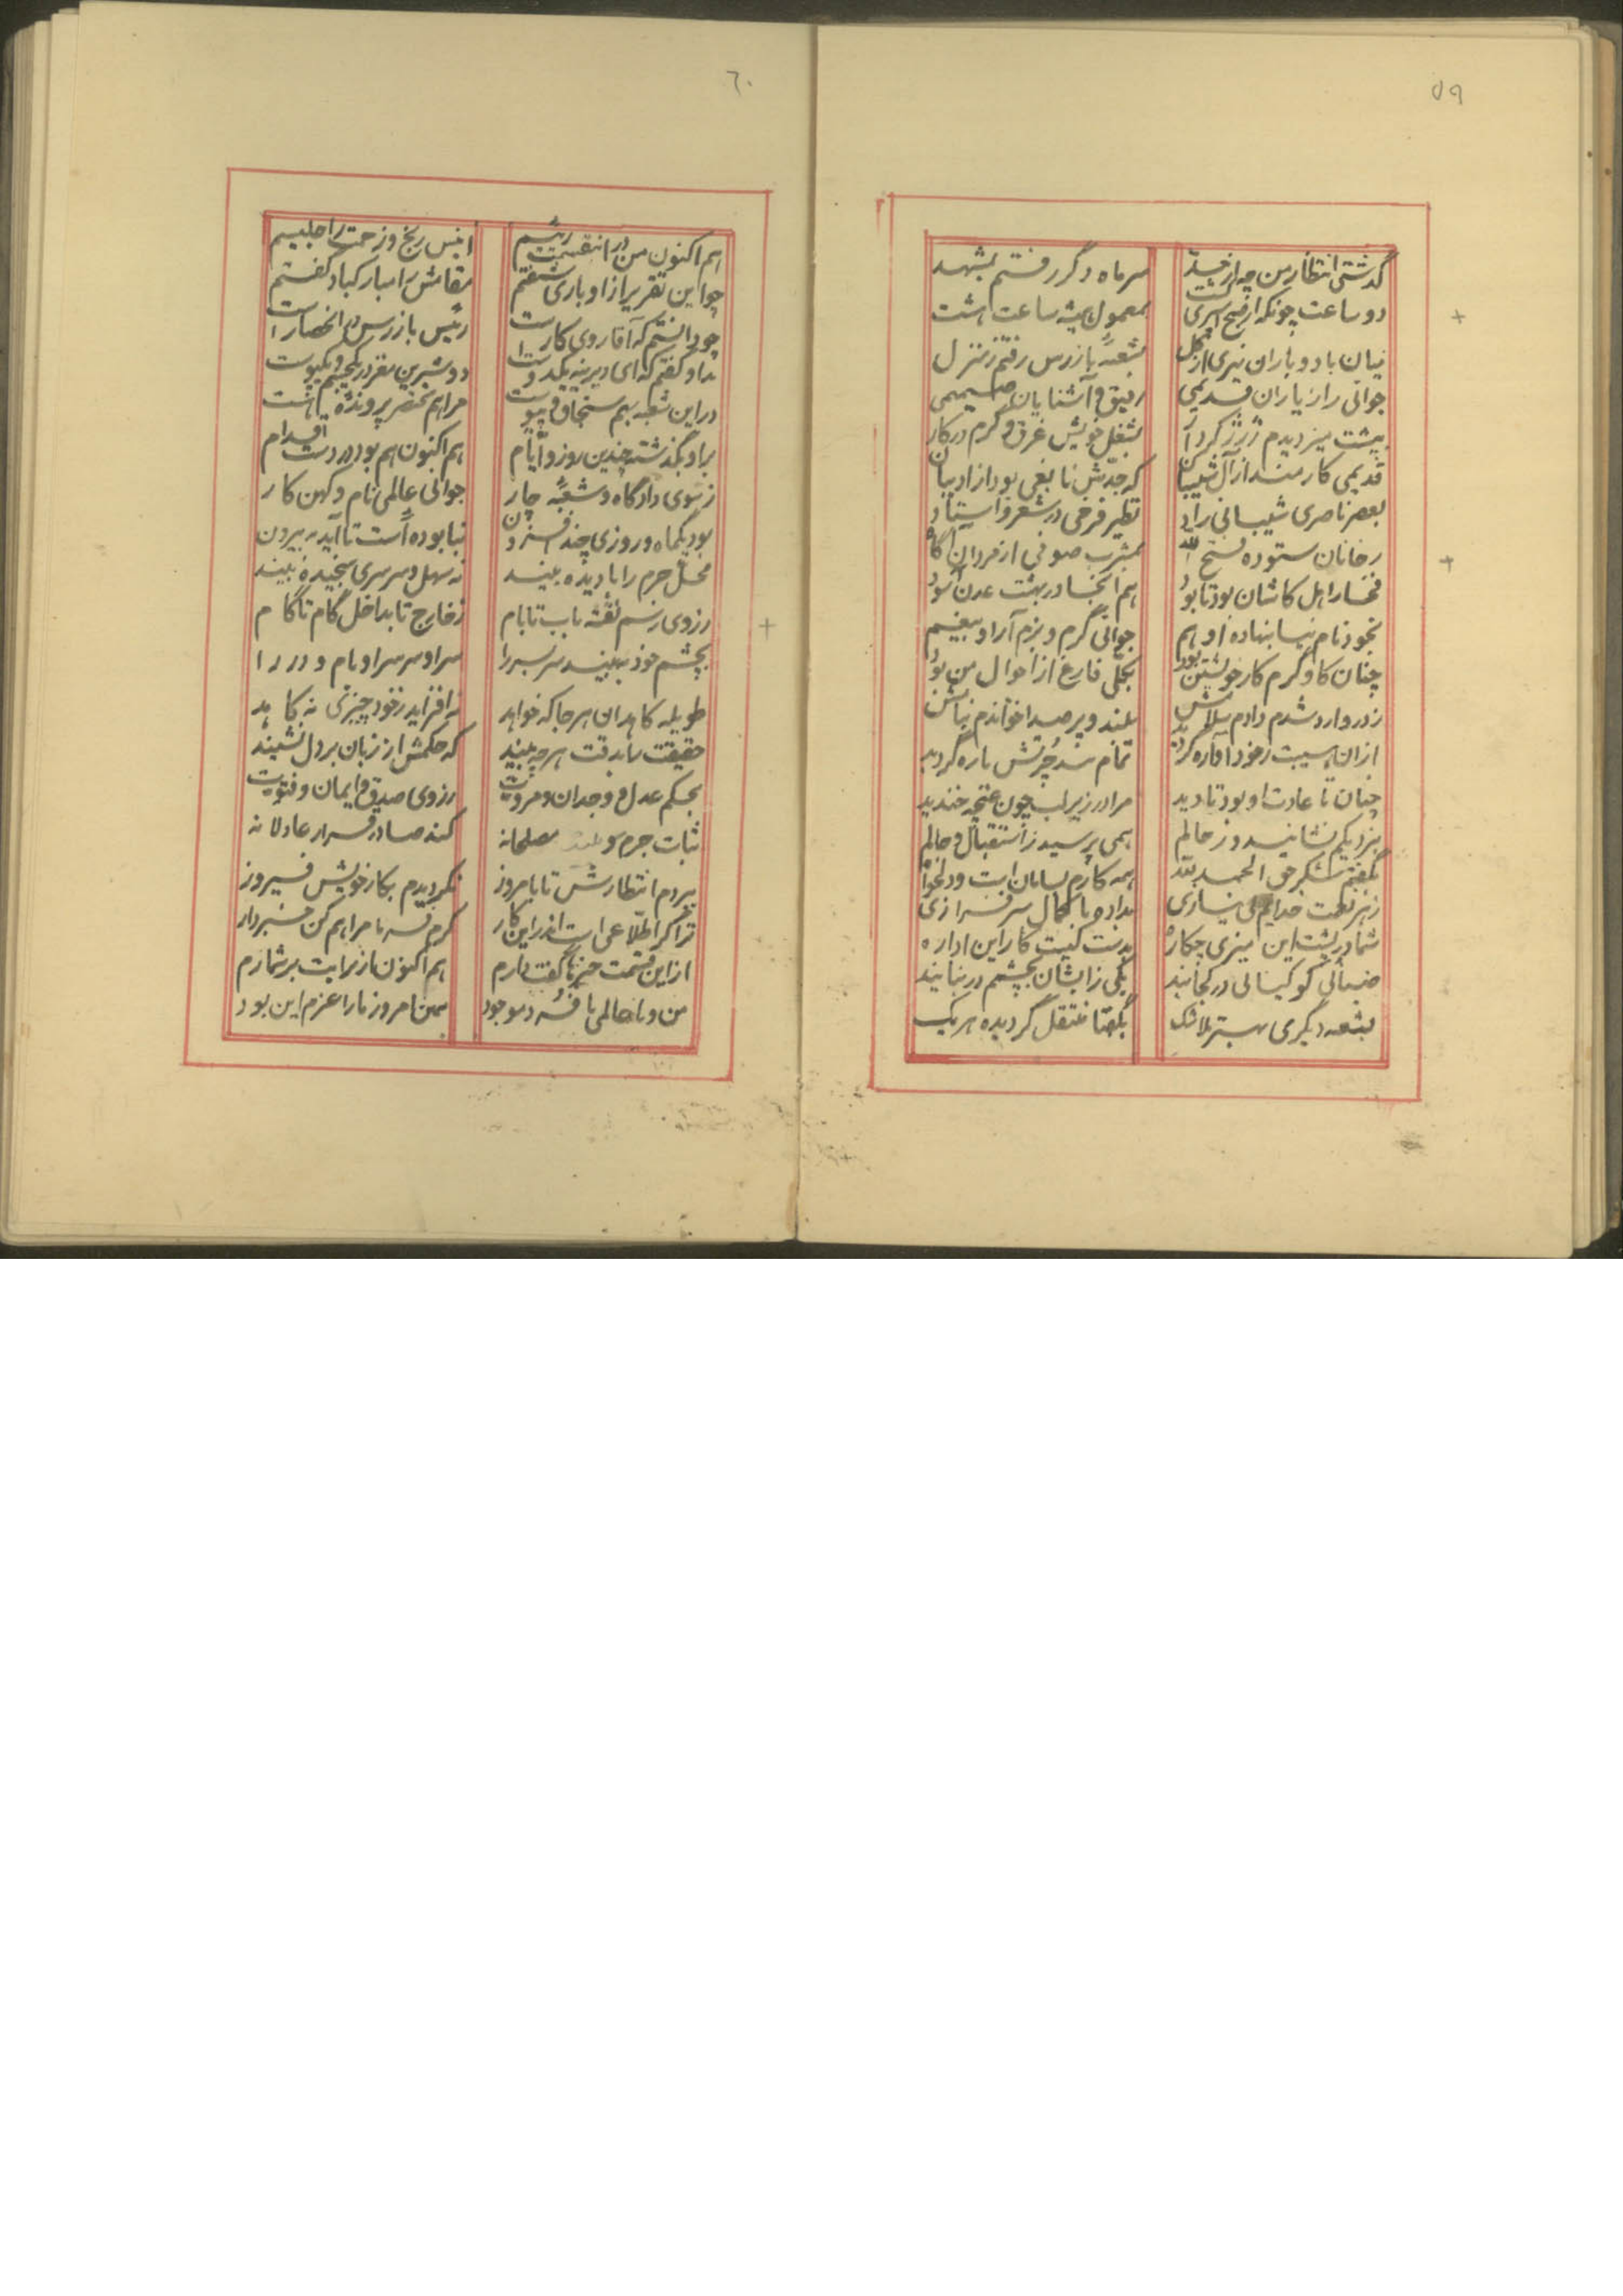 ۵۹
گذشتی انتظار من چو از حد
سر ماه دگر رفتم بمشهد
دو ساعت چونکه از صبح اسری گشت
بمعمول همیشه ساعت هشت
میان باد و باران نیری از گل
بشعبهٔ بازرس رفتم ز منزل
جوانی را ز یاران قدیمی
رفیق و آشنایان صمیمی
بپشت میز دیدم
بشغل خویش غرق و گرم در کار
قدیمی کارمند از آل شیبان
که جدش نابغی بود از ادیبان
بعصر ناصری شیبانی راد
نظیر فرخی در شعر و استاد
ز خانان ستوده فتح الله
بمشرب صوفی از فردان آگاه
فخار اهل کاشان بود تا بود
هم آنجا در بهشت عدن آسود
بخود نام نیا بنهاده او هم
جوانی گرم و بزم آرا و بیغم
چنان کاو گرم کار خویشتن بود
بکلی فارغ از احوال من بود
ز در وارد شدم دادم سلامش
بلند و پر صدا خواندم بنامش
از آن هیبت ز خود آواره گردید
تمام شد چرتش پاره گردید
چنان تا عادت او بود تا دید
مرا در زیر لب چون غنچه خندید
بنزدیکم نشانید و ز حالم
همی پرسید ز استقبال و حالم
بگفتم شکر حق الحمد لله
همه کارم بسامان است و دلخواه
ز هر نعمت خدایم بی نیازی
بداده با کمال سرفرازی
شما در پشت این میزی چکاره
بدست کیست کار این اداره
ضیائی کو کیانی در کجایند
یکی زایشان بچشم در نیایند
بشعبه دیگری بهتر بلاشک
بگفتا منتقل گردیده هر یک
۶۰
هم اکنون من در این قسمت رئیسم
انیس رنج و زحمت را جلیسم
چو این تقریر از او باری شنفتم
مقامش را مبارکباد گفتم
چو دانستم که آقا روی کار است
رئیس بازرس در انحصار است
بدو گفتم که ای دیرینه یکدوست
دو شیرین مغز در یکجسم و یکپوست
در این شعبه بهم سنجاق و پیوست
مرا هم مختصر پرونده هست
بر او بگذشته چندین روز و ایام
هم اکنون هم بود در دست اقدام
ز سوی دادگاه و شعبهٔ چار
جوانی عالمی نام و کهن کار
بود یکماه و روزی چند افزون
بنا بوده است تا آید به بیرون
محل جرم را با دیده بیند
نه سهل و سرسری سنجیده بیند
ز روی رسم نقشه باب تا بام
ز خارج تا بداخل گام تا گام
بچشم خود ببیند سر بسر را
سرا و سرسرا و بام و در را
طویله کاهدان هر جا که خواهد
نه افزاید ز خود چیزی نه کاهد
حقیقت را بدقت هر چه بیند
که حکمش از زبان بر دل نشیند
بحکم عدل و وجدان و مروت
ز روی صدق و ایمان و فتوت
ثبات جرم و مصلحانه
کند صادر قرار عادلانه
ببردم انتظارش تا بامروز
نگردیدم بکار خویش فیروز
ترا گر اطلاعی است اندر این کار
کرم فرما مرا هم کن خبردار
از این قسمت خبر ناگفته دارم
هم اکنون از برایت بر شمارم
من و با عالمی با فرد موجود
همین امروز ما را عزم این بود